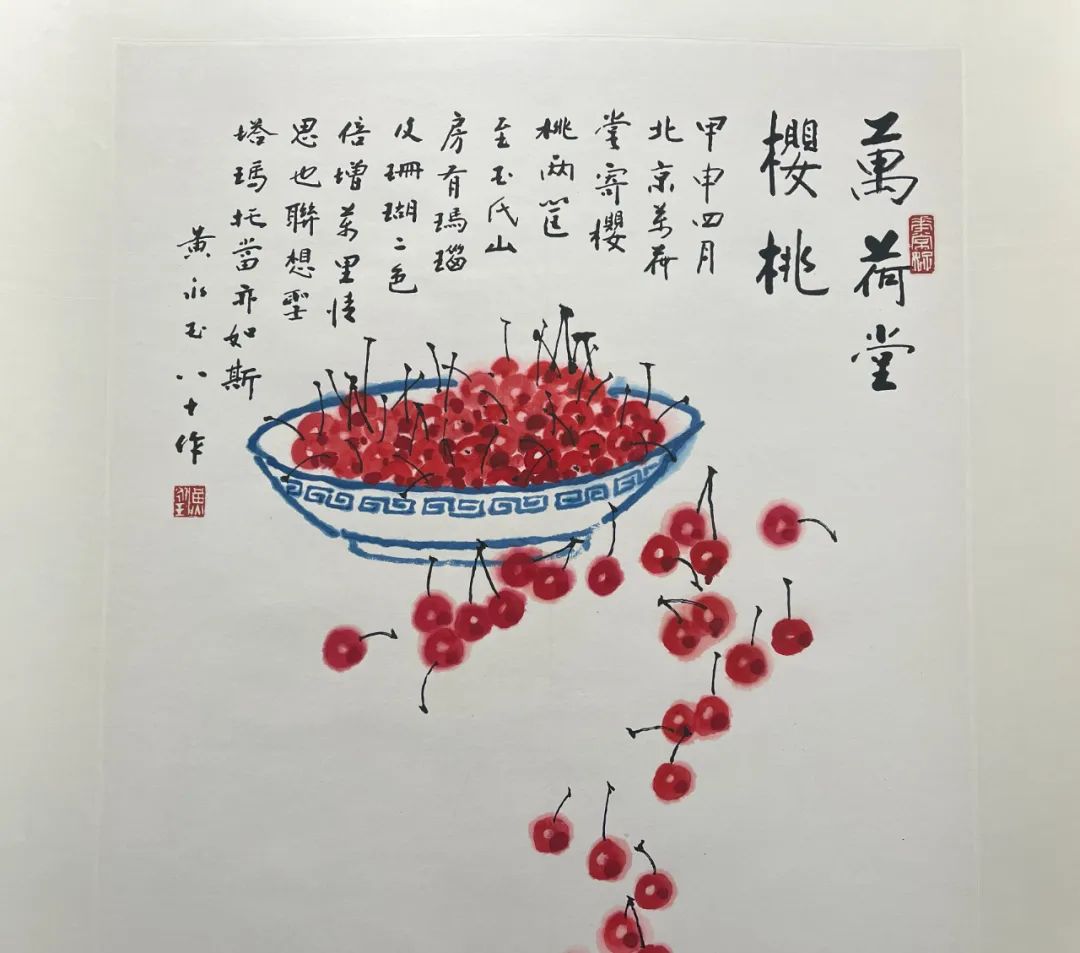 萬荷堂
櫻桃
甲申四月
北京萬荷
堂寄櫻
桃两筐
至玉氏山
房有瑪瑙
及珊瑚二色
倍增萬里情
思也聯想聖
塔瑪托當亦如斯
黄永玉八十作